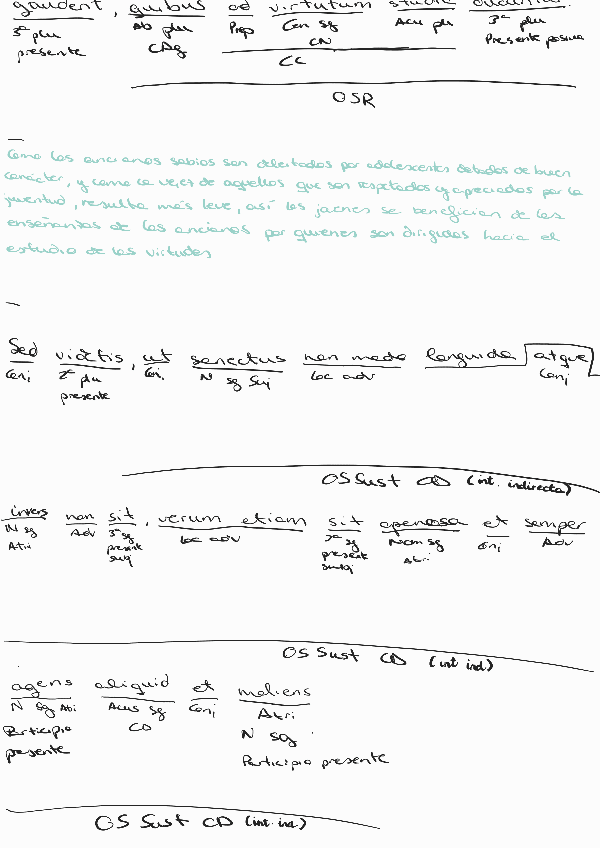 gaudent, quibus ad virtutum studia
3ª plu Ab plu Prep Gen sg Acu plu 3ª plu
presente CAg CN Presente pasiva
CC
OSR
Como los ancianos sabios son deleitados por adolescentes dotados de buen
carácter, y como la vejez de aquellos que son respetados y apreciados por la
juventud, resulta más leve, así los jóvenes se benefician de las
enseñanzas de los ancianos por quienes son dirigidos hacia el
estudio de las virtudes
Sed videtis, ut senectus non modo languida atque
Conj 2ª plu Conj. N sg Suj Loc adv Conj
presente
OS Sust CD (int. indirecta)
iners non sit, verum etiam sit operosa et semper
N sg Adv 3ª sg Loc adv 3ª sg Nom sg Conj Adv
Atri presente presente Atri
subj subj
OS Sust CD (int ind)
agens aliquid et moliens
N sg Atri Acus sg Conj Atri
Participio CD N sg
presente Participio presente
OS Sust CD (int. ind.)